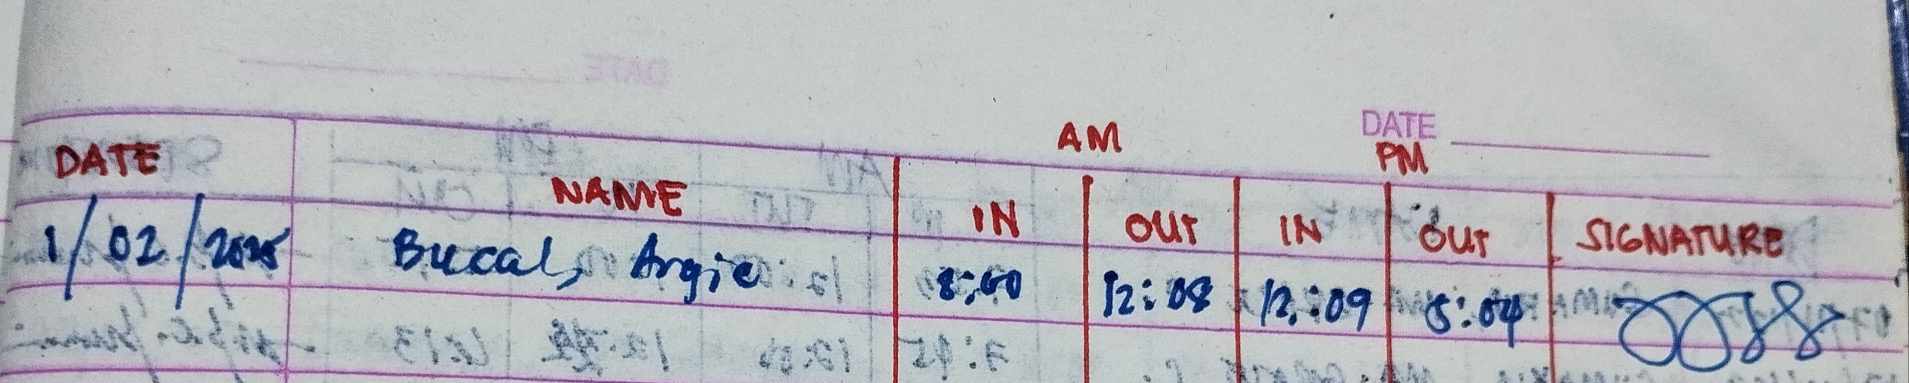 DATE
AM
PM
DATE NAME IN OUT IN OUT SIGNATURE
1/02/2025 Bucal, Argie 8:00 12:08 12:09 5:04